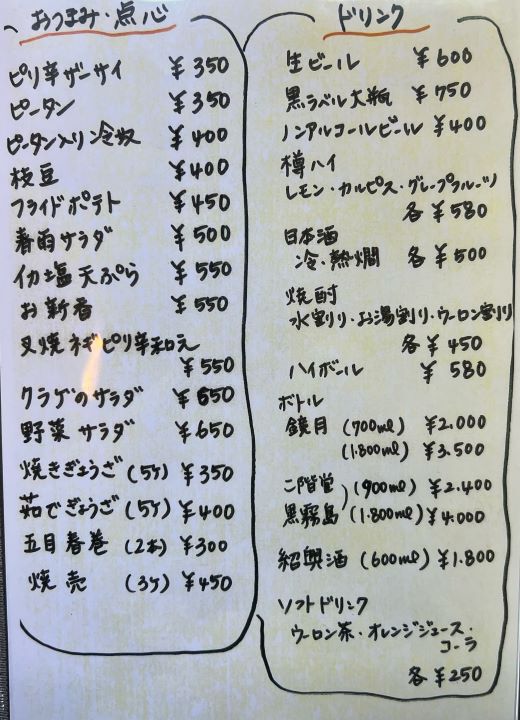 おつまみ・点心
ピリ辛ザーサイ ¥350
ピータン ¥350
ピータン入り冷奴 ¥400
枝豆 ¥400
フライドポテト ¥450
春雨サラダ ¥500
イカ塩天ぷら ¥550
お新香 ¥550
叉焼ネギピリ辛和え
¥550
クラゲのサラダ ¥650
野菜サラダ ¥650
焼きぎょうざ (5ケ) ¥350
茹でぎょうざ (5ケ) ¥400
五目春巻 (2本) ¥300
焼売 (3ケ) ¥450
ドリンク
生ビール ¥600
黒ラベル大瓶 ¥750
ノンアルコールビール ¥400
樽ハイ
レモン・カルピス・グレープフルーツ
各¥580
日本酒
冷・熱燗 各¥500
焼酎
水割り・お湯割り・ウーロン割り
各¥450
ハイボール ¥580
ボトル
鏡月 (700ml) ¥2.000
(1.800ml) ¥3.500
二階堂 (900ml) ¥2.400
黒霧島 (1.800ml) ¥4.000
紹興酒 (600ml) ¥1.800
ソフトドリンク
ウーロン茶・オレンジジュース・
コーラ
各¥250